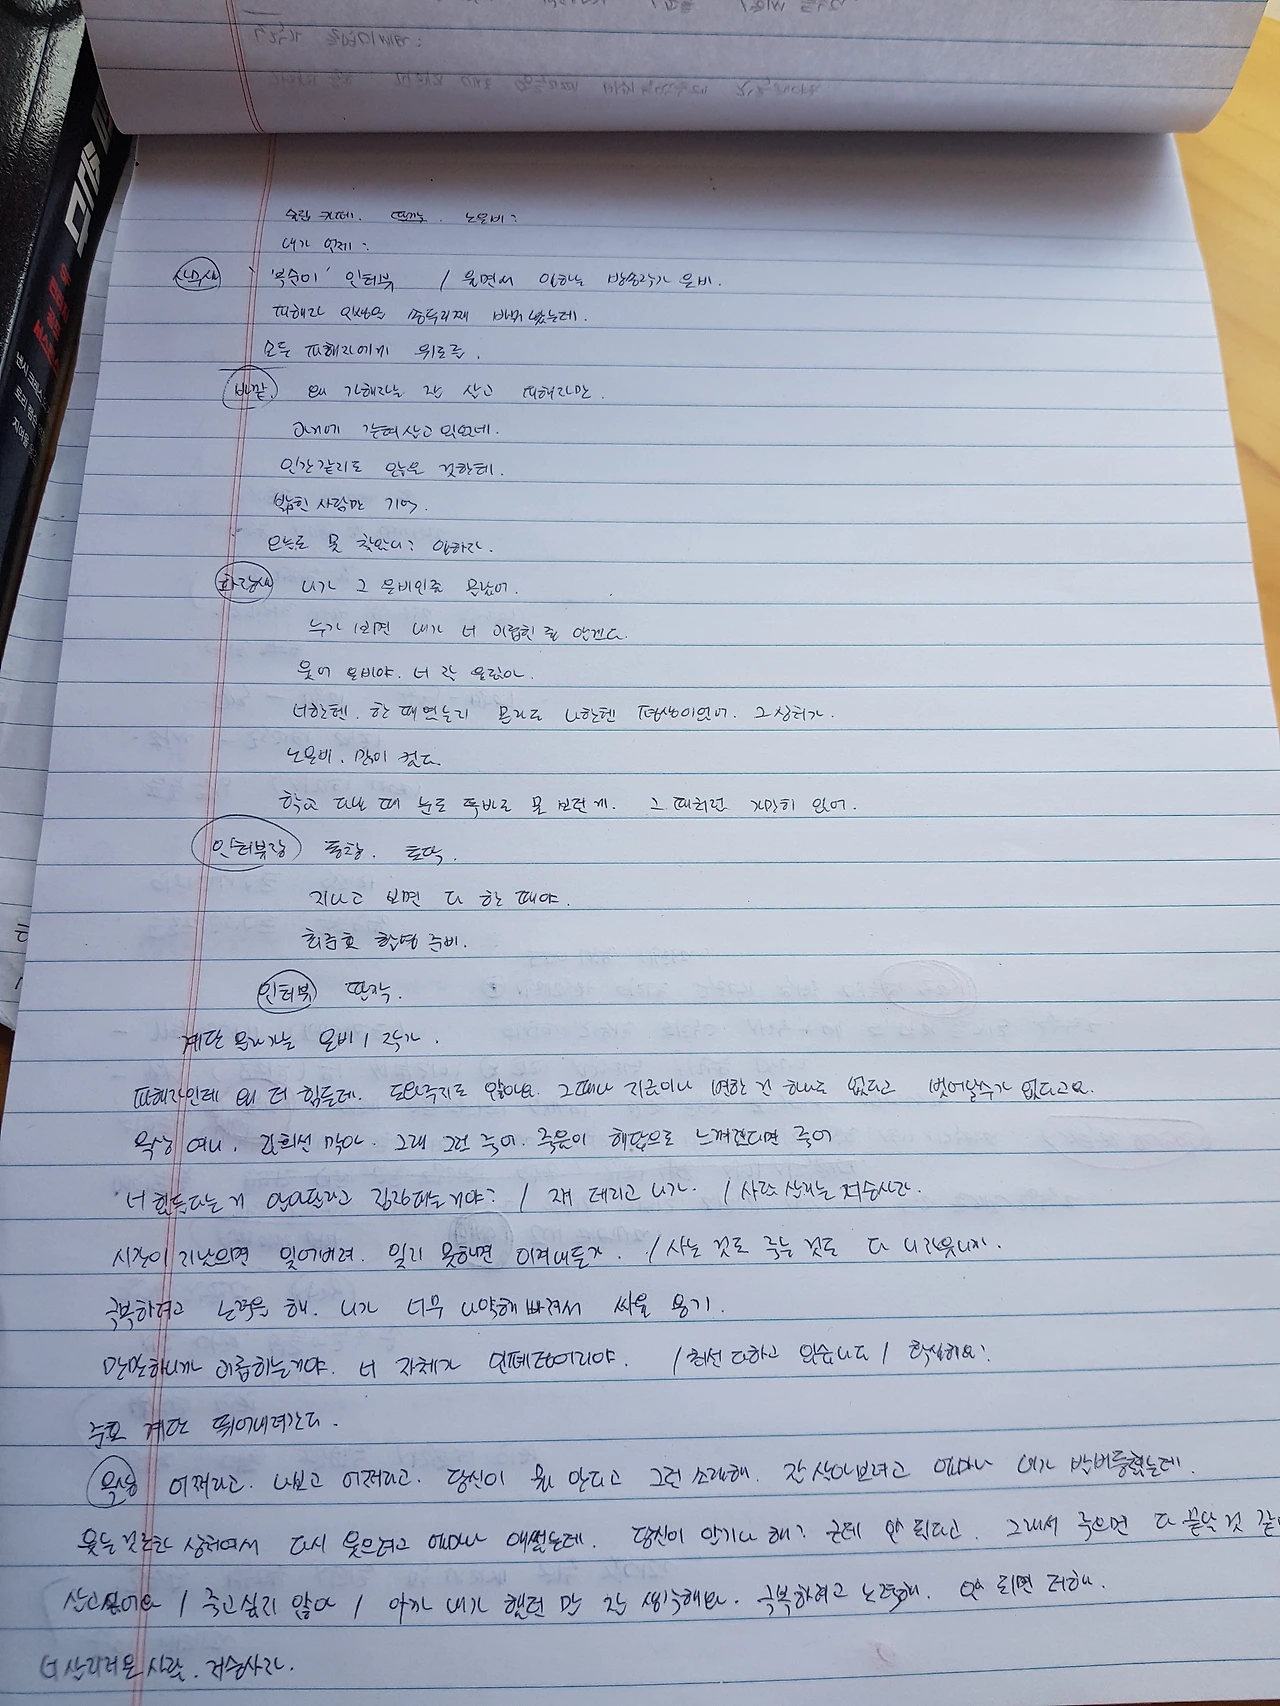 내가 언제?
'복순이' 인터뷰 / 울면서 일하는 방송작가 은비.
피해자 인생을 송두리째 바꿔 놨는데.
모든 피해자에게 위로를.
바깥. 왜 가해자는 잘 살고 피해자만
과거에 갇혀 살고 있었네.
인간같지도 않은 것한테.
밟힌 사람만 기억.
오늘도 못 찾았다? 일하자.
화장실 니가 그 은비인줄 몰랐어.
누가 보면 내가 너 괴롭힌 줄 알겠다.
웃어 은비야. 너 잘 웃잖아.
너한텐. 한 때였는지 몰라도 나한텐 평생이었어. 그 상처가.
노은비. 많이 컸다.
학교 다닐 때 눈도 똑바로 못 보던 게. 그 때처럼 가만히 있어.
인터뷰장 퉁창. 토닥.
지나고 보면 다 한 때야.
최준호 촬영 준비.
인터뷰 딴짓.
계단 올라가는 은비 / 작가.
피해자인데 왜 더 힘든데. 도와주지도 않아요. 그때나 지금이나 변한 건 하나도 없다고 벗어날수가 없다고요.
옥상 여니. 김희선 막아. 그래 그럼 죽어. 죽음이 해답으로 느껴진다면 죽어
너 힘들다는 게 알아달라고 징징대는거야? / 쟤 데리고 나가. / 사람 살리는 저승사자.
시간이 지났으면 잊어버려. 잊지 못하면 이겨내든가. / 사는 것도 죽는 것도 다 니 자유니까.
극복하려고 노력을 해. 니가 너무 나약해 빠져서 싸울 용기.
만만하니까 괴롭히는거야. 너 자체가 민폐덩어리야. / 최선 다하고 있습니다 / 확실해요?
준호 계단 뛰어내려간다.
옥상 어쩌라고. 나보고 어쩌라고. 당신이 뭘 안다고 그런 소리해. 잘 살아보려고 얼마나 내가 발버둥쳤는데.
웃는 것조차 상처여서 다시 웃으려고 얼마나 애썼는데. 당신이 알기나 해? 근데 안 된다고 그래서 죽으면 다 끝날 것 같
살고 싶어요 / 죽고싶지 않아 / 아까 내가 했던 말 잘 생각해요. 극복하려고 노력해. 안 되면 더해.
너 살리러온 사람. 저승사자.